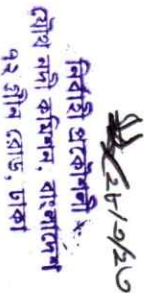 ২৮/৩/২৩
নির্বাহী প্রকৌশলী
যৌথ নদী কমিশন, বাংলাদেশ
৭২ গ্রীন রোড, ঢাকা